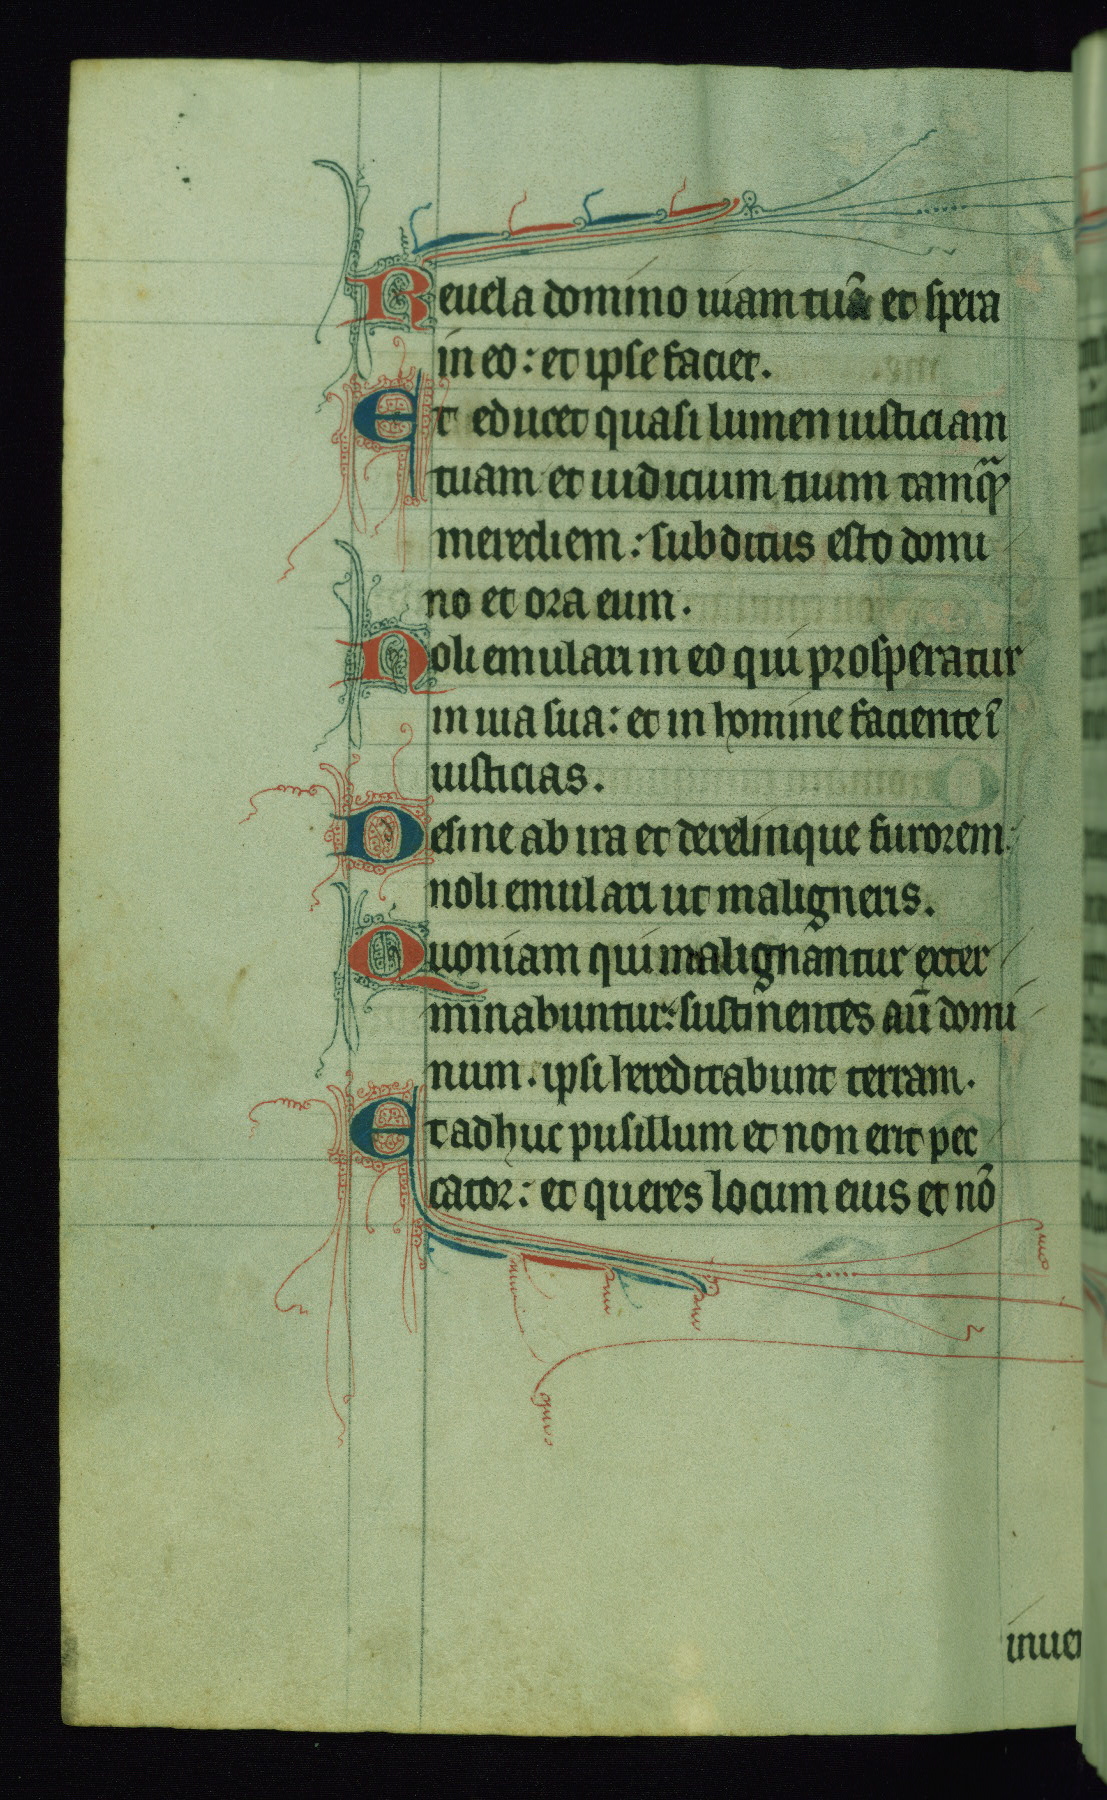 Reuela domino uiam tuā et spera
in eo: et ipse faciet.
Et educet quasi lumen iusticiam
tuam et iudicium tuum tamqͣ
meridiem: subditus esto domi
no et ora eum.
Noli emulari in eo qui prosperatur
in uia sua: et in homine faciente ī
iusticias.
Desine ab ira et derelinque furorem:
noli emulari ut maligneris.
Quoniam qui malignantur exter
minabuntur: sustinentes aū domi
num. ipsi hereditabunt terram.
Et adhuc pusillum et non erit pec
cator: et queres locum eius et nō